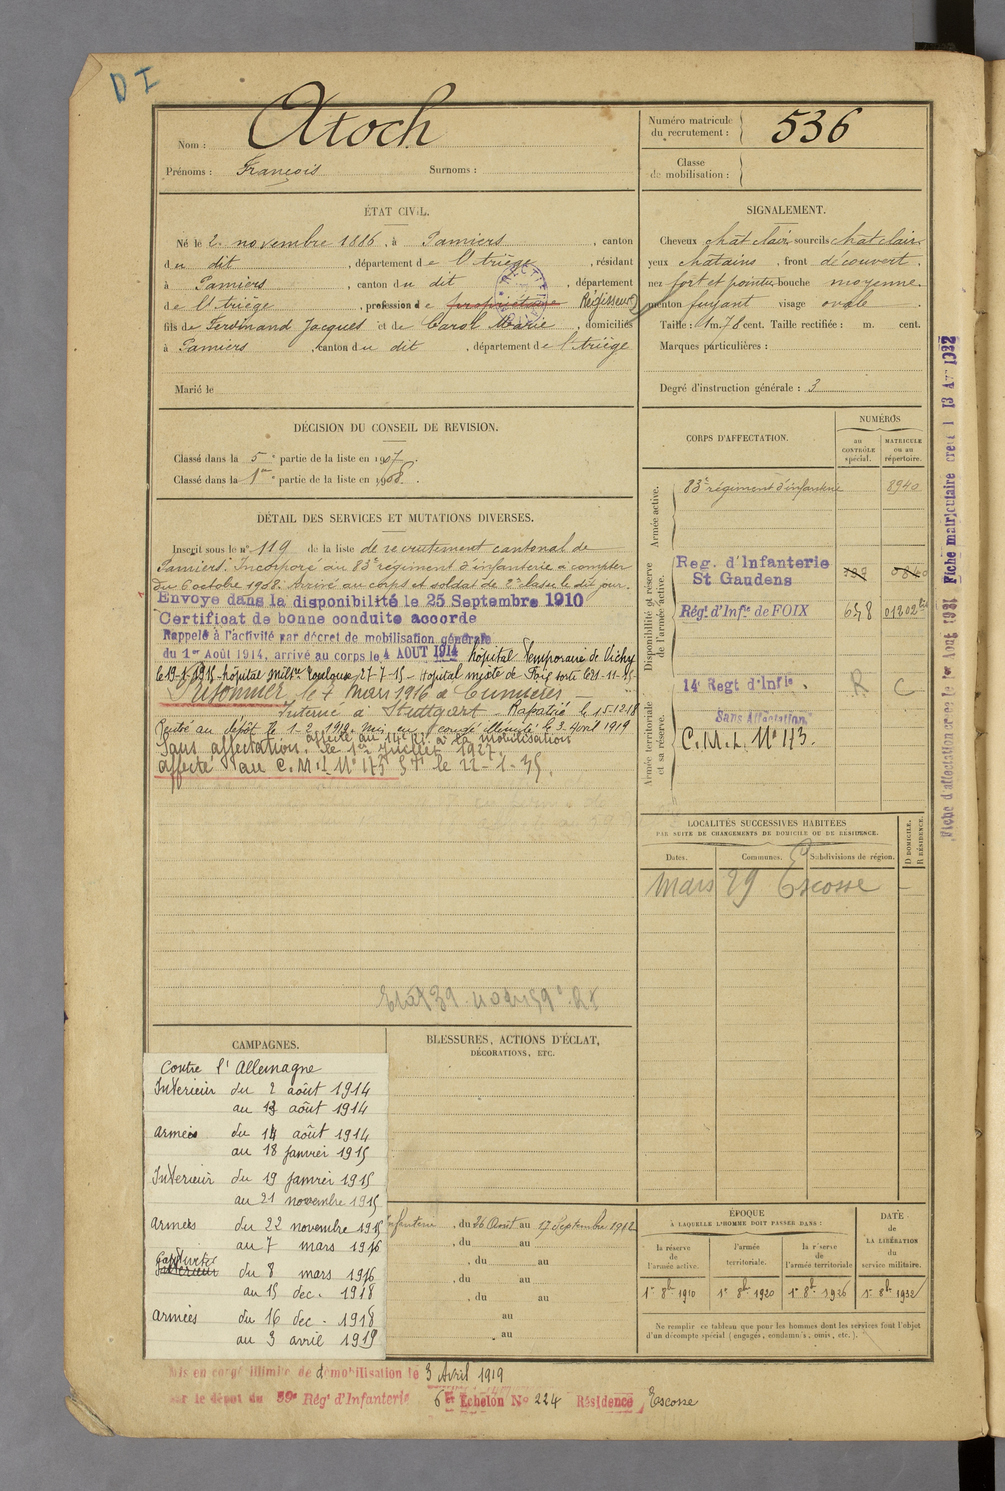 D I
Nom : Atoch
Prénoms : François Surnoms :
Numéro matricule du recrutement : 536
Classe de mobilisation :
ÉTAT CIVIL.
Né le 2 novembre 1886, à Pamiers, canton
du dit, département de l'Ariège, résidant
à Pamiers, canton du dit, département
de l'Ariège, profession de propriétaire Régisseur
fils de Ferdinand Jacques et de Carol Marie, domiciliés
à Pamiers, canton du dit, département de l'Ariège
Marié le
SIGNALEMENT.
Cheveux chat clair sourcils chat clair
yeux chatains, front découvert.
nez fort et pointu bouche moyenne.
menton fuyant visage ovale
Taille : 1 m. 78 cent. Taille rectifiée : m. cent.
Marques particulières :
Degré d'instruction générale : 3
DÉCISION DU CONSEIL DE REVISION.
Classé dans la 5e partie de la liste en 1907.
Classé dans la 1re partie de la liste en 1908.
DÉTAIL DES SERVICES ET MUTATIONS DIVERSES.
Inscrit sous le n° 119 de la liste de recrutement cantonal de
Pamiers. Incorporé au 83e régiment d'infanterie à compter
du 6 octobre 1908. Arrivé au corps et soldat de 2e classe le dit jour.
Envoyé dans la disponibilité le 25 Septembre 1910
Certificat de bonne conduite accordé
Rappelé à l'activité par décret de mobilisation générale
du 1er Août 1914, arrivé au corps le 4 AOUT 1914 hôpital Temporaire de Vichy
le 19-1-1915 - hôpital milre Toulouse 27-7-15 - Hopital mixte de Foix sorti le 21-11-15
Prisonnier le 7 Mars 1916 à Cumières -
Interné à Stuttgart - Rapatrié le 15.12.18
Rentré au dépôt le 1-2-1919. Mis en congé illimité le 3 Avril 1919
affecté au 14e RI à la mobilisation
Sans affectation. le 1er Juillet 1927.
affecté au C.M.I. N° 173 le 22-1-35.
CORPS D'AFFECTATION.
NUMÉROS
au CONTRÔLE spécial.
MATRICULE ou au répertoire.
Armée active.
83e régiment d'infanterie 8940
Disponibilité et réserve de l'armée active.
Reg. d'Infanterie
St Gaudens
Régt d'Infie de FOIX 658
Armée territoriale et sa réserve.
14e Regt d'Infie. R C
Sans Affectation
C.M.I. N° 173.
LOCALITÉS SUCCESSIVES HABITÉES
PAR SUITE DE CHANGEMENTS DE DOMICILE OU DE RÉSIDENCE.
Dates. Communes. Subdivisions de région.
D DOMICILE. R RÉSIDENCE.
Mars 29 Escosse
CAMPAGNES.
Contre l'Allemagne
Intérieur du 2 août 1914
au 13 août 1914
armées du 14 août 1914
au 18 janvier 1915
Intérieur du 19 janvier 1915
au 21 novembre 1915
armées du 22 novembre 1915
au 7 mars 1916
Captivité
Intérieur du 8 mars 1916
au 15 dec. 1918
armées du 16 dec. 1918
au 3 avril 1919
BLESSURES, ACTIONS D'ÉCLAT,
DÉCORATIONS, ETC.
Infanterie, du 26 Août au 17 Septembre 1912
, du au
, du au
, du au
, du au
au
au
ÉPOQUE
À LAQUELLE L'HOMME DOIT PASSER DANS :
la réserve de l'armée active.
l'armée territoriale.
la réserve de l'armée territoriale
DATE de LA LIBÉRATION du service militaire.
1er 8bre 1910 1er 8bre 1920 1er 8bre 1926 1er 8bre 1932
Ne remplir ce tableau que pour les hommes dont les services font l'objet
d'un décompte spécial (engagés, condamnés, omis, etc.).
Mis en congé illimité de démobilisation le 3 Avril 1919
par le dépôt du 59e Régt d'Infanterie 6e Echelon N° 224 Résidence Escosse